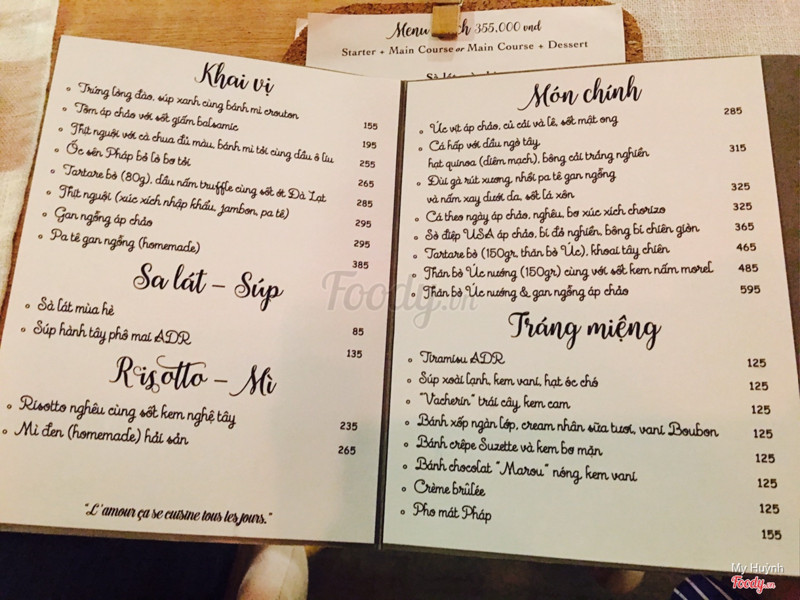 Menu
355.000 vnd
Starter + Main Course or Main Course + Dessert
Khai vị
Trứng lòng đào, súp xanh cùng bánh mì crouton 155
Tôm áp chảo với sốt giấm balsamic 195
Thịt nguội với cà chua đủ màu, bánh mì tỏi cùng dầu ô liu 255
Ốc sên Pháp bỏ lò bơ tỏi 265
Tartare bò (80g), dầu nấm truffle cùng sốt ớt Đà Lạt 285
Thịt nguội (xúc xích nhập khẩu, jambon, pa tê) 295
Gan ngỗng áp chảo 295
Pa tê gan ngỗng (homemade) 385
Sa lát – Súp
Sà lát mùa hè 85
Súp hành tây phô mai ADR 135
Risotto – Mì
Risotto nghêu cùng sốt kem nghệ tây 235
Mì đen (homemade) hải sản 265
"L'amour ça se cuisine tous les jours."
Món chính
Ức vịt áp chảo, củ cải và lê, sốt mật ong 285
Cá hấp với dầu ngò tây
hạt quinoa (diêm mạch), bông cải trắng nghiền 315
Đùi gà rút xương, nhồi pa tê gan ngỗng
và nấm xay dưới da, sốt lá xôn 325
Cá theo ngày áp chảo, nghêu, bơ xúc xích chorizo 325
Sò điệp USA áp chảo, bí đỏ nghiền, bông bí chiên giòn 365
Tartare bò (150gr, thăn bò Úc), khoai tây chiên 465
Thăn bò Úc nướng (150gr) cùng với sốt kem nấm morel 485
Thăn bò Úc nướng & gan ngỗng áp chảo 595
Tráng miệng
Tiramisu ADR 125
Súp xoài lạnh, kem vani, hạt óc chó 125
"Vacherin" trái cây kem cam 125
Bánh xốp ngàn lớp, cream nhân sữa tươi, vani Boubon 125
Bánh crêpe Suzette và kem bơ mặn 125
Bánh chocolat "Marou" nóng, kem vani 125
Crème brûlée 125
Pho mát Pháp 155
Foody.vn
My Huỳnh
Foody.vn